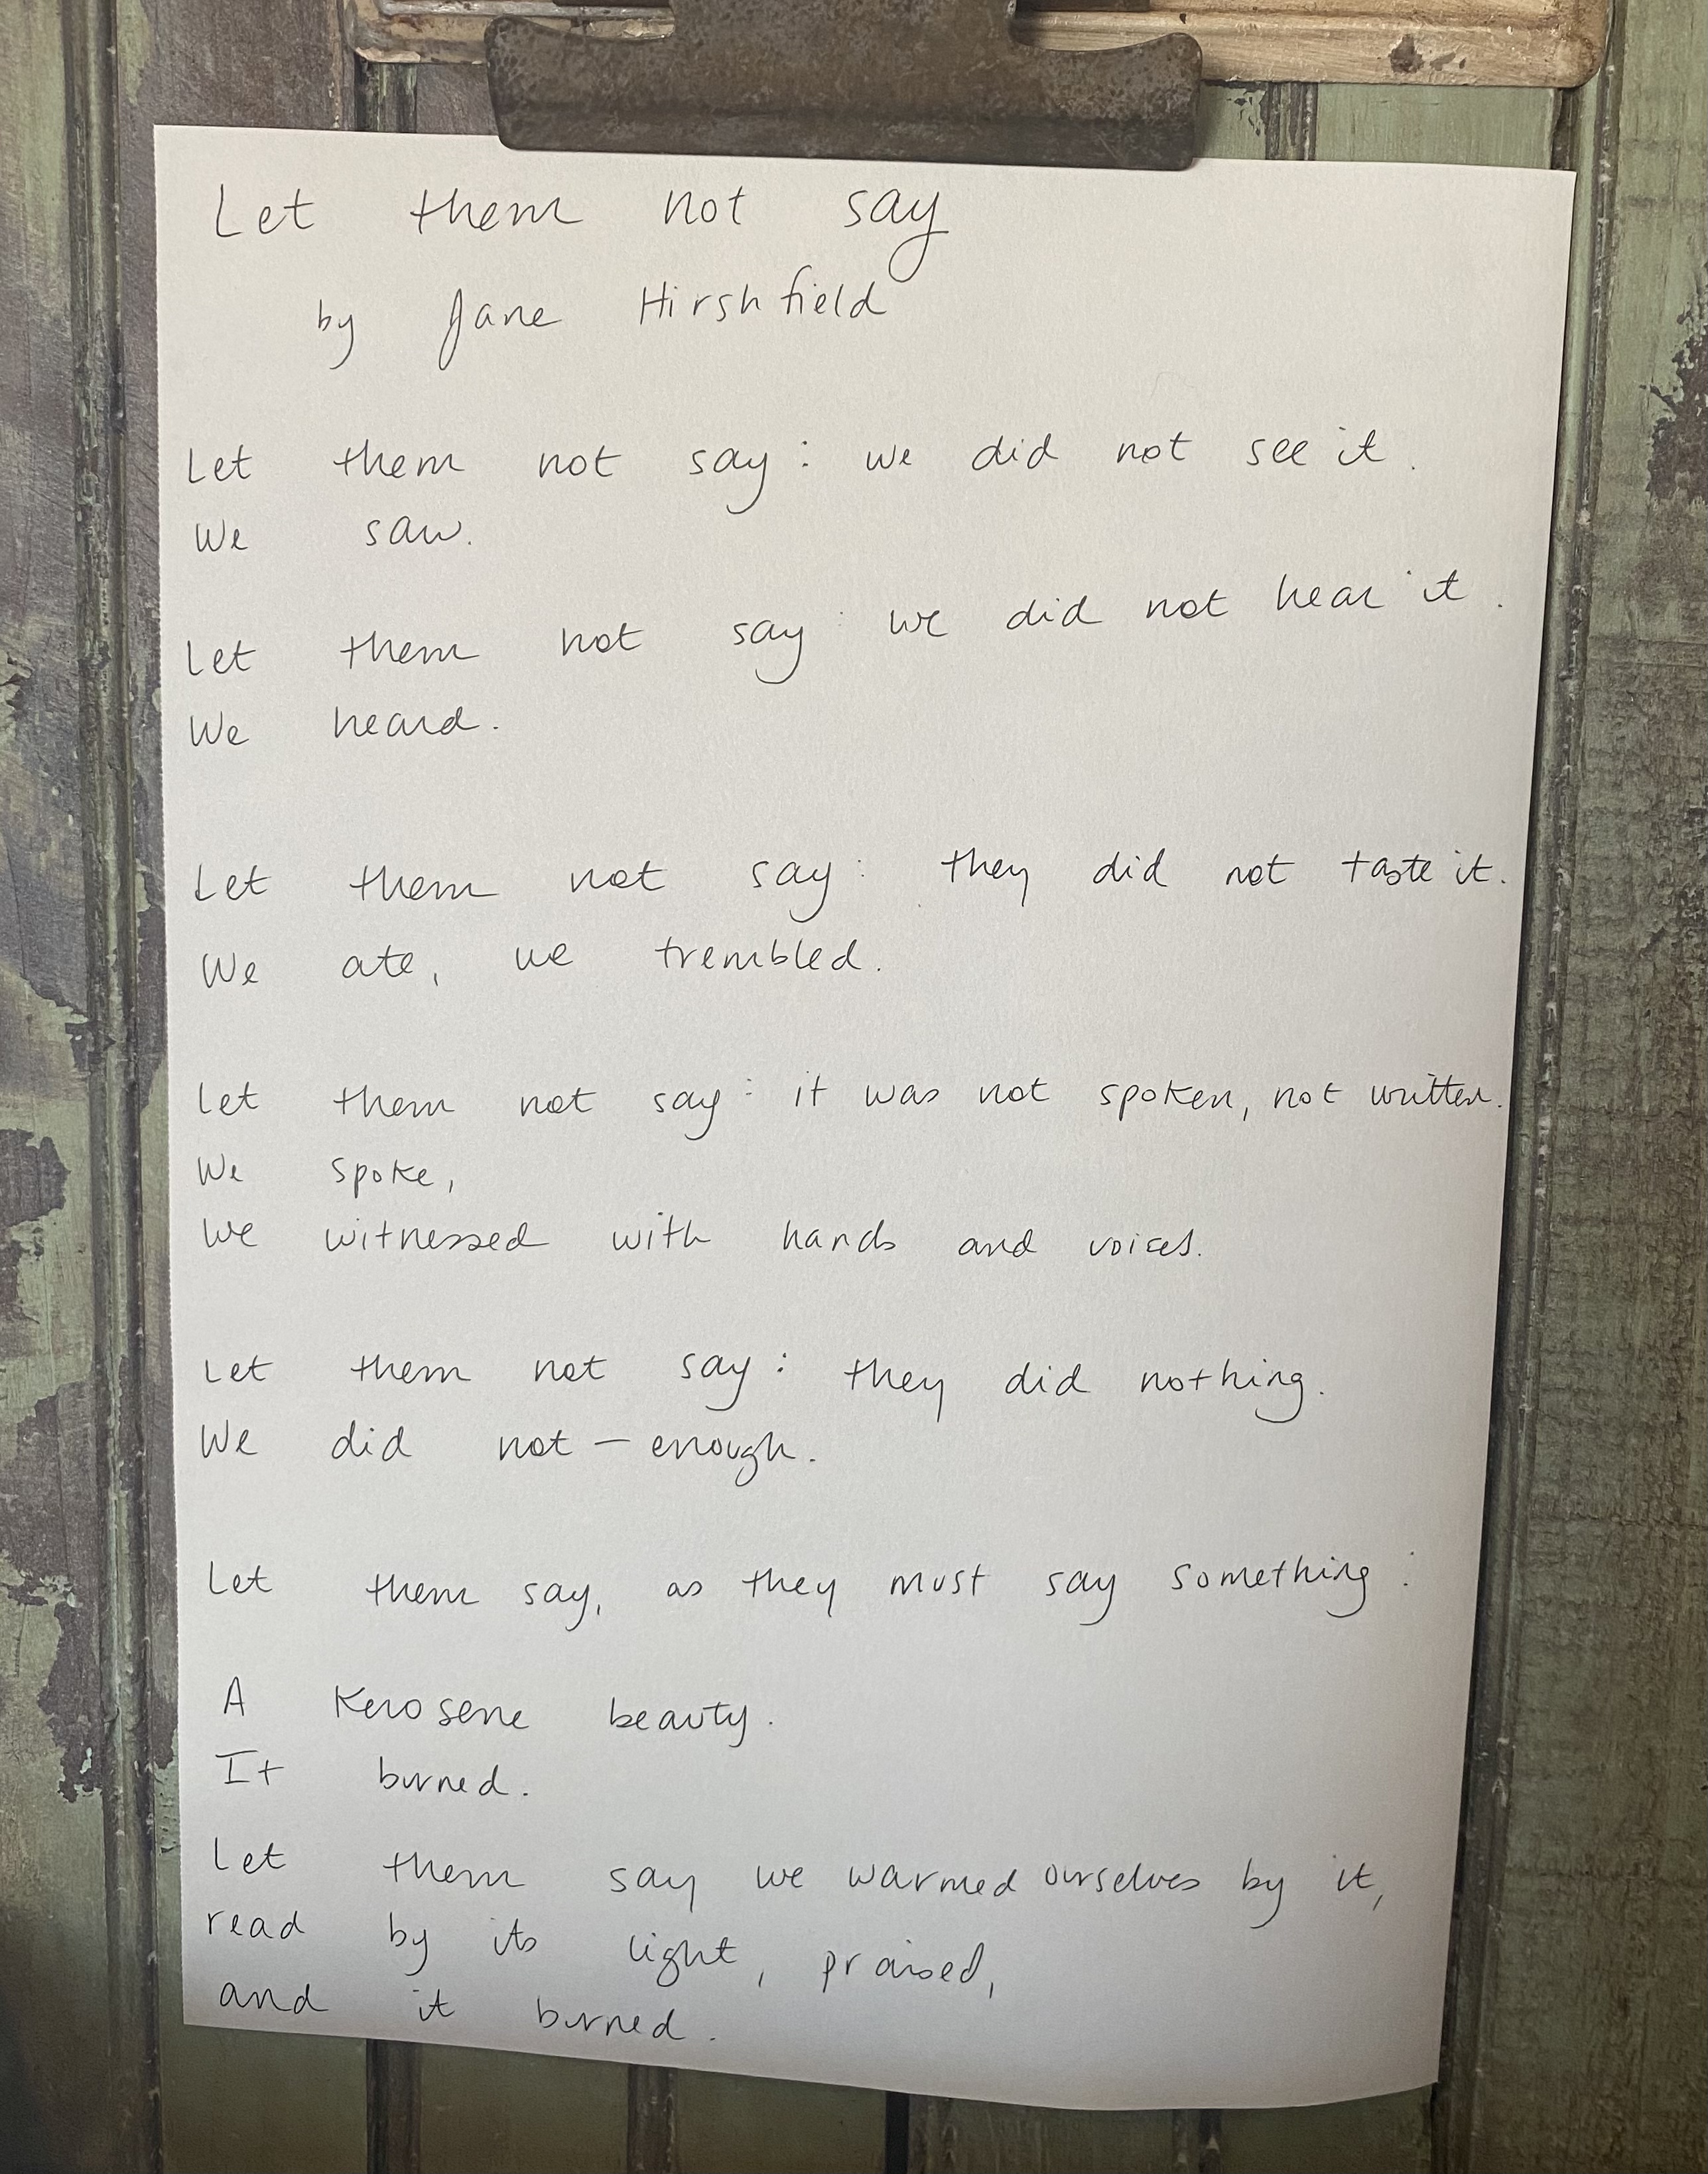 Let them not say
by Jane Hirshfield
Let them not say: we did not see it.
We saw.
Let them not say: we did not hear it.
We heard.
Let them not say: they did not taste it.
We ate, we trembled.
Let them not say: it was not spoken, not written.
We spoke,
we witnessed with hands and voices.
Let them not say: they did nothing.
We did not-enough.
Let them say, as they must say something:
A kerosene beauty.
It burned.
Let them say we warmed ourselves by it,
read by its light, praised,
and it burned.